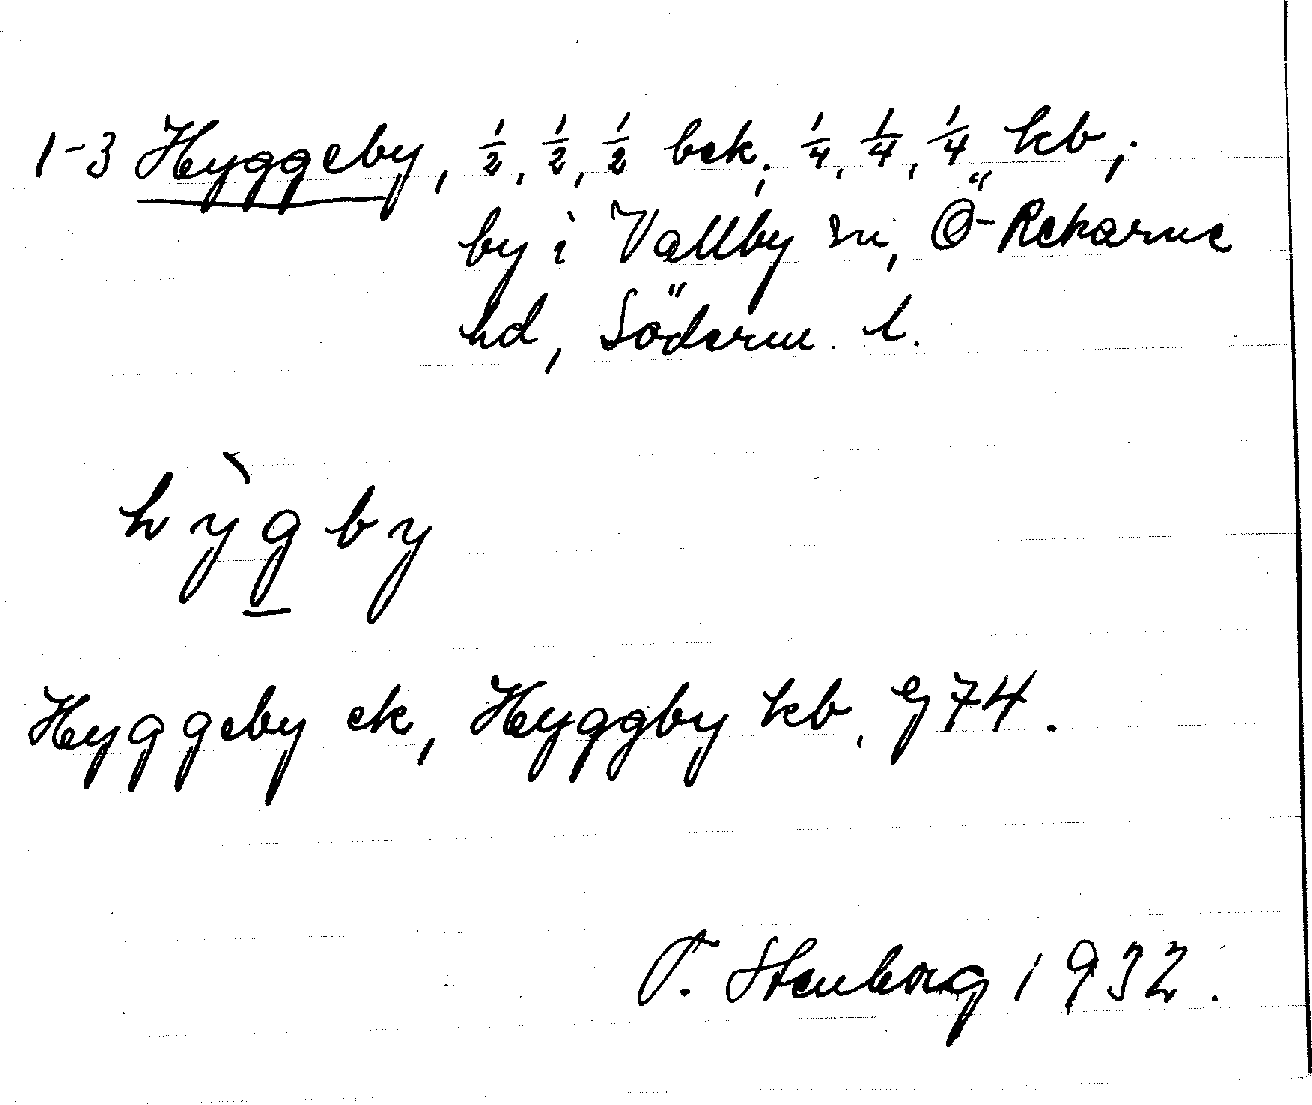 1-3 Hyggeby, 1/2, 1/2, 1/2 bek; 1/4, 1/4, 1/4 kb;
by i Vallby sn, Ö-Rekarne
hd, Söderm. l.
hỳgby
Hyggeby ek, Hyggby kb, G74.
T. Stenborg 1932.